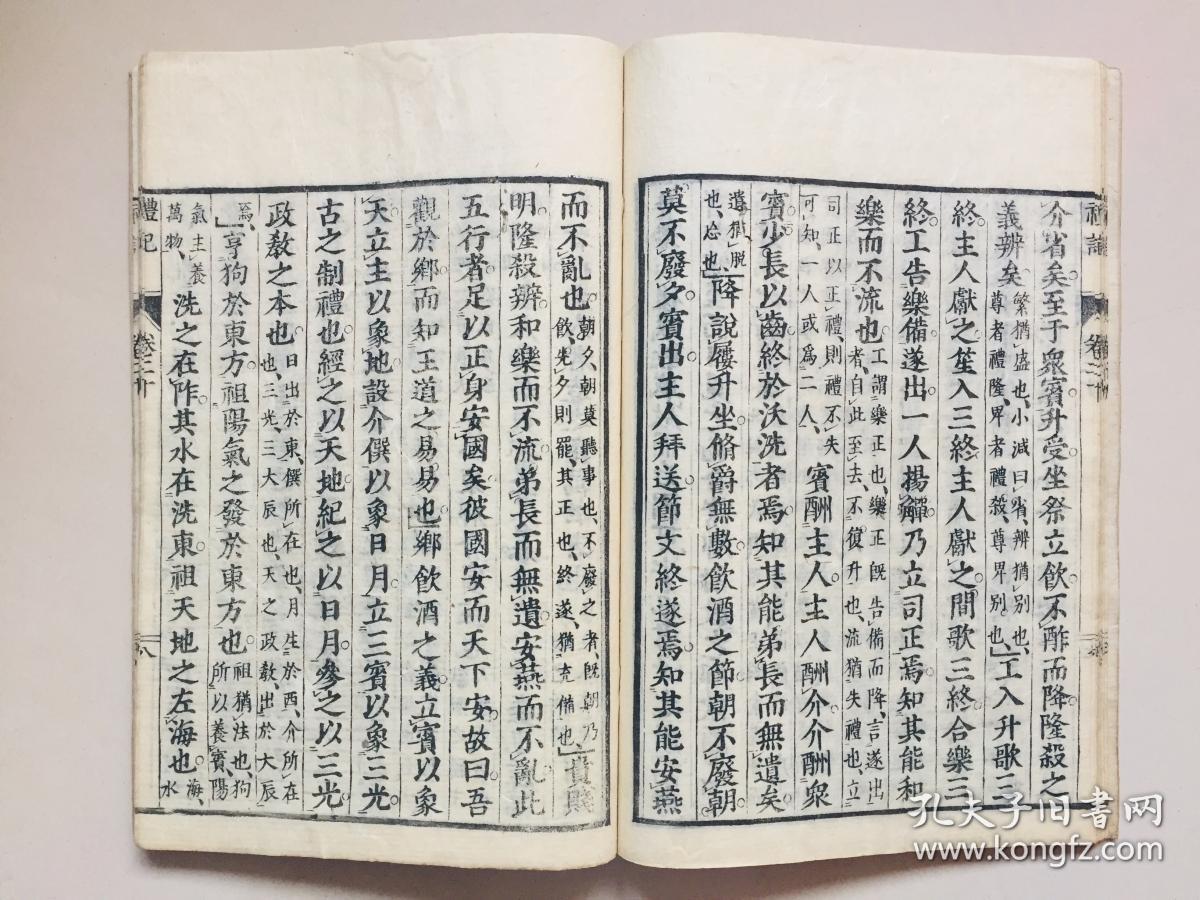 禮記 卷二十
介省矣至于衆賓升受坐祭立飲不酢而降隆殺之
義辨矣 繁猶盛也、小減曰省、辨猶別也、尊者禮隆、卑者禮殺、尊卑別也、工入升歌三
終主人獻之笙入三終主人獻之間歌三終合樂三
終工告樂備遂出一人揚觶乃立司正焉知其能和
樂而不流也 工謂樂正也、樂正既告備而降、言遂出者、自此至去、不復升也、流猶失禮也、立
司正以正禮、則禮不失可知、一人或爲二人、賓酬主人主人酬介介酬衆
賓少長以齒終於沃洗者焉知其能弟長而無遺矣
遺猶脫也、忘也、降說屨升坐脩爵無數飲酒之節朝不廢朝
莫不廢夕賓出主人拜送節文終遂焉知其能安燕
而不亂也 朝夕、朝莫聽事也、不廢之者、既朝乃飲、先夕則罷、其正也、終遂、猶充備也、貴賤
明隆殺辨和樂而不流弟長而無遺安燕而不亂此
五行者足以正身安國矣彼國安而天下安故曰吾
觀於鄉而知王道之易易也鄉飲酒之義立賓以象
天立主以象地設介僎以象日月立三賓以象三光
古之制禮也經之以天地紀之以日月參之以三光
政教之本也 日出於東、僎所在也、月生於西、介所在也、三光、三大辰也、天之政教、出於大辰
焉、亨狗於東方祖陽氣之發於東方也 祖猶法也狗所以養賓、陽
氣主養萬物、洗之在阼其水在洗東祖天地之左海也 海、水
禮記 卷二十 八
孔夫子旧书网
www.kongfz.com